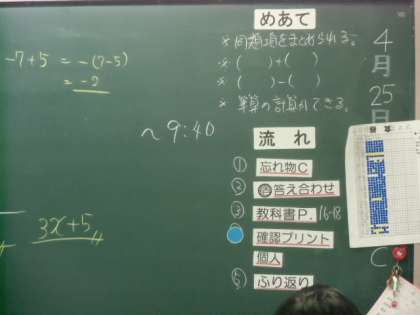 -7+5 = -(7-5)
= -2
~9:40
3x+5
めあて
※ 同類項をまとめられる。
※ (  )+(  )
※ (  )-(  )
※ 筆算の計算ができる。
流れ
① 忘れ物C
② 答え合わせ
③ 教科書P. 16-18
確認プリント
個人
⑤ ふり返り
4月25日
C